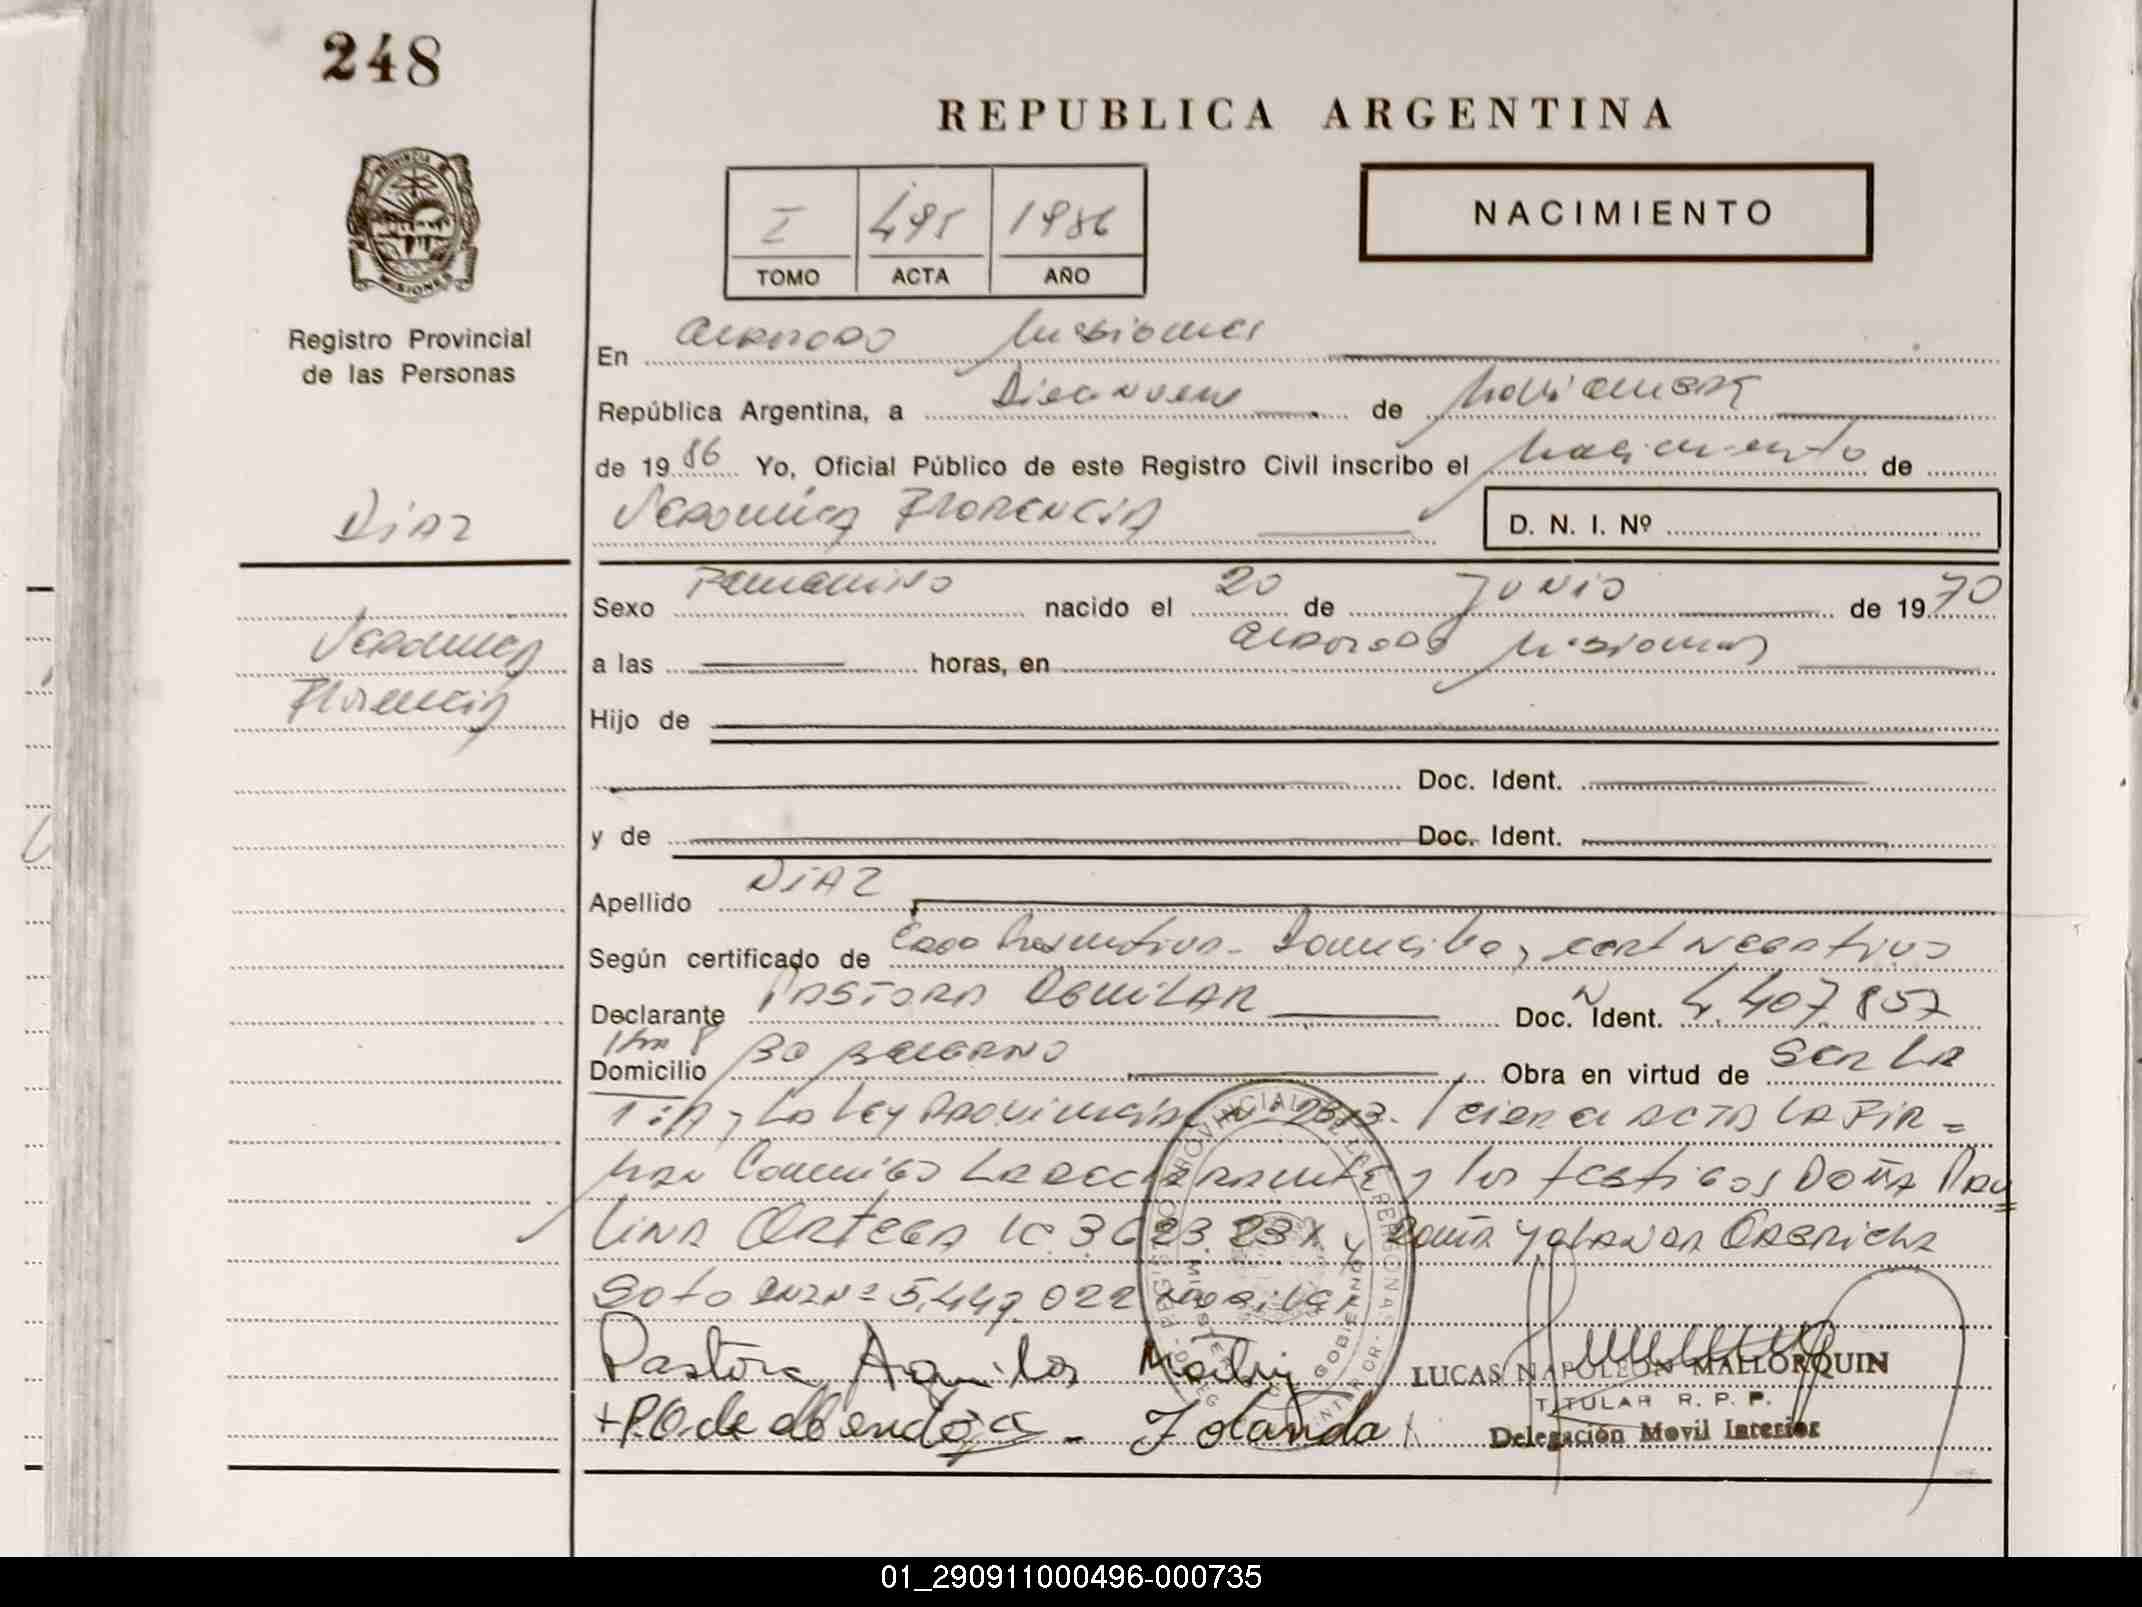 248
REPUBLICA ARGENTINA
I 495 1986
TOMO ACTA AÑO
NACIMIENTO
PROVINCIA DE
MISIONES
Registro Provincial
de las Personas
En Eldorado Misiones
República Argentina, a Diecinueve de Noviembre
de 1986 Yo, Oficial Público de este Registro Civil inscribo el Nacimiento de
DIAZ
VERONICA FLORENCIA
D. N. I. Nº
Sexo Femenino nacido el 20 de JUNIO de 1970
Veronica
Florencia
a las horas, en Eldorado Misiones
Hijo de
Doc. Ident.
y de Doc. Ident.
Apellido DIAZ
Según certificado de Domicilio, cert Negativo
Declarante PASTORA AGUILAR Doc. Ident. 4.407.857
Km 8
Domicilio Bo Obra en virtud de SER LA
TIA y La Ley Provincial acta LA FIR=
man Conmigo La declarante y los testigos Doña Pau
lina Ortega LC 3623.231 y Doña Yolanda
Soto DNI Nº 5.449.022
Pastora Aguilar
LUCAS NAPOLEON MALLORQUIN
TITULAR R. P. P.
+P.O. de Mendoza - Yolanda
Delegación Movil Interior
01_290911000496-000735